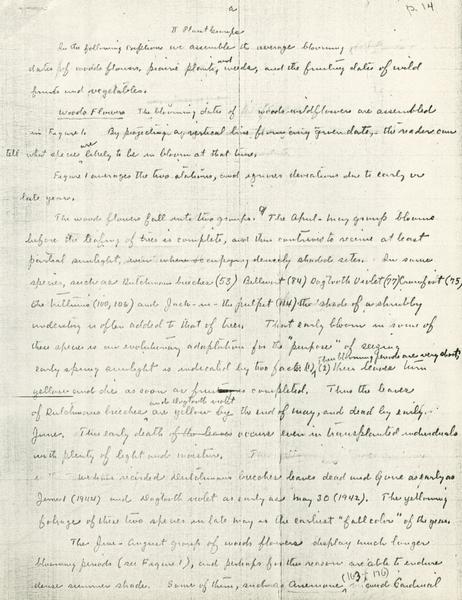 2
p. 14
II Plant Groups
In the following captions we assemble the average blooming
dates of woods flowers, prairie plants, and weeds, and the fruiting dates of wild
fruits and vegetables.
Woods Flowers The blooming dates of woods wildflowers are assembled
in Figure 1. By projecting a vertical line from any given date, the reader can
tell what species are likely to be in bloom at that time.
Figure 1 averages the two stations, and ignores deviations due to early or
late years.
The woods flowers fall into two groups. The April-May group blooms
before the leafing of trees is complete, and thus contrives to receive at least
partial sunlight, even when occupying densely shaded sites. In some
species, such as Dutchmans breeches (53) Bellwort (84) Dogtooth Violet (77) Crowfoot (75)
the trilliums (100, 106) and Jack-in-the-pulpit (114) the shade of a shrubby
understory is often added to that of trees. That early bloom in some of
these species is an evolutionary adaptation for the "purpose" of seizing
early spring sunlight is indicated by two facts: (1) Their blooming periods are very short; (2) Their leaves turn
yellow and die as soon as fruit is completed. Thus the leaves
of Dutchmans breeches and dogtooth violet are yellow by the end of May, and dead by early
June. This early death of the leaves occurs even in transplanted individuals
with plenty of light and moisture.
we have recorded Dutchmans breeches leaves dead and gone as early as
June 1 (1944) and Dogtooth violet as early as May 30 (1942). The yellowing
foliage of these two species in late May is the earliest "fall color" of the year.
The June-August group of woods flowers display much longer
blooming periods (see Figure 1), and perhaps for this reason are able to endure
dense summer shade. Some of them, such as Anemone (103, 176), and Cardinal